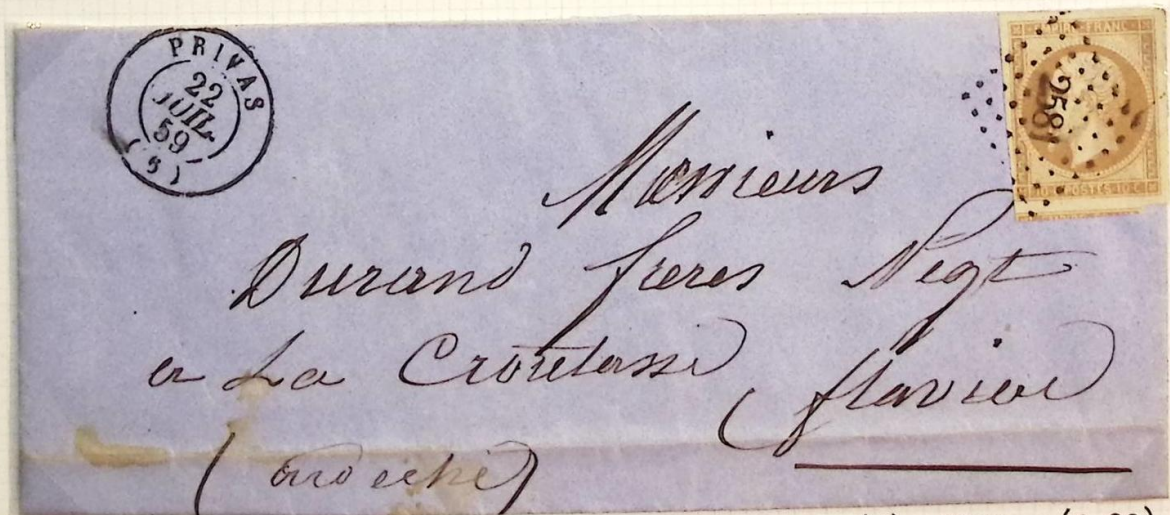 PRIVAS
22
JUIL
59
(6)
EMPIRE FRANC
2581
10 C POSTES 10 C
Monsieurs
Durand freres Negt
a La Croutasse
flaviac
(ardeche)